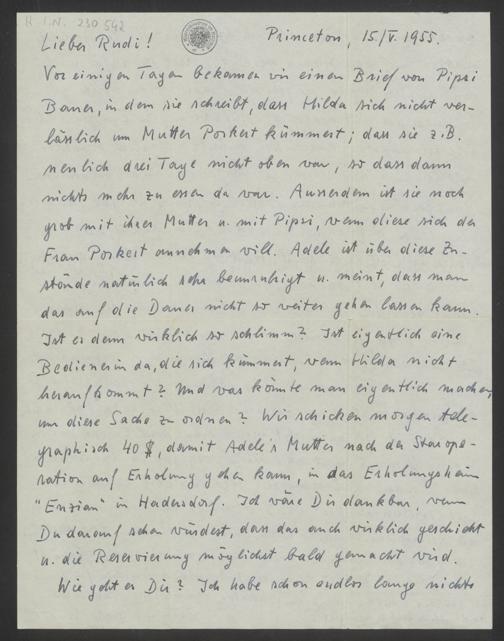 H.I.N. 230542
Lieber Rudi! Princeton, 15/V. 1955.
Vor einigen Tagen bekamen wir einen Brief von Pipsi
Bauer, in dem sie schreibt, dass Hilda sich nicht ver-
lässlich um Mutter Porkert kümmert; dass sie z.B.
neulich drei Tage nicht oben war, so dass dann
nichts mehr zu essen da war. Ausserdem ist sie noch
grob mit ihrer Mutter u. mit Pipsi, wenn diese sich der
Frau Porkert annehmen will. Adele ist über diese Zu-
stände natürlich sehr beunruhigt u. meint, dass man
das auf die Dauer nicht so weiter gehen lassen kann.
Ist es denn wirklich so schlimm? Ist eigentlich eine
Bedienerin da, die sich kümmert, wenn Hilda nicht
heraufkommt? Und was könnte man eigentlich machen,
um diese Sache zu ordnen? Wir schicken morgen tele-
graphisch 40 $, damit Adele's Mutter nach der Starope-
ration auf Erholung gehen kann, in das Erholungsheim
"Enzian" in Hadersdorf. Ich wäre Dir dankbar, wenn
Du darauf sehen würdest, dass das auch wirklich geschieht
u. die Reservierung möglichst bald gemacht wird.
Wie geht es Dir? Ich habe schon endlos lange nichts